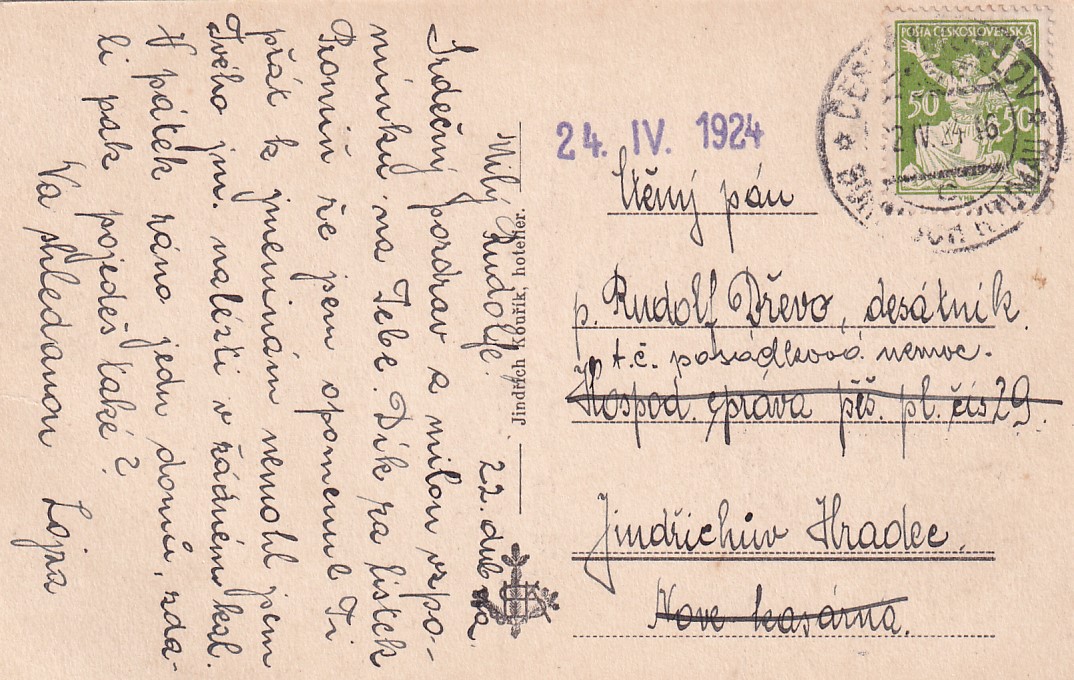 Milý Rudolfe. 22. dubna.
Srdečný pozdrav a milou vzpo-
mínku na Tebe. Dík za lístek
Promiň že jsem opomenul Ti
přát k jmeninám nemohl jsem
Tvého jm. nalézti v řádném kal.
V pátek ráno jedu domů, zda-
li pak pojedeš také?
Na shledanou Lojza
Jindřich Kouřík, hotelier.
24. IV. 1924
POŠTA ČESKOSLOVENSKÁ
50 50
22 IV. 24-16
Ctěný pán
p. Rudolf Dřevo, desátník
t.č. posádková nemoc.
Hospod. správa pěš. pl. čís 29.
Jindřichův Hradec.
Nové kasárna.